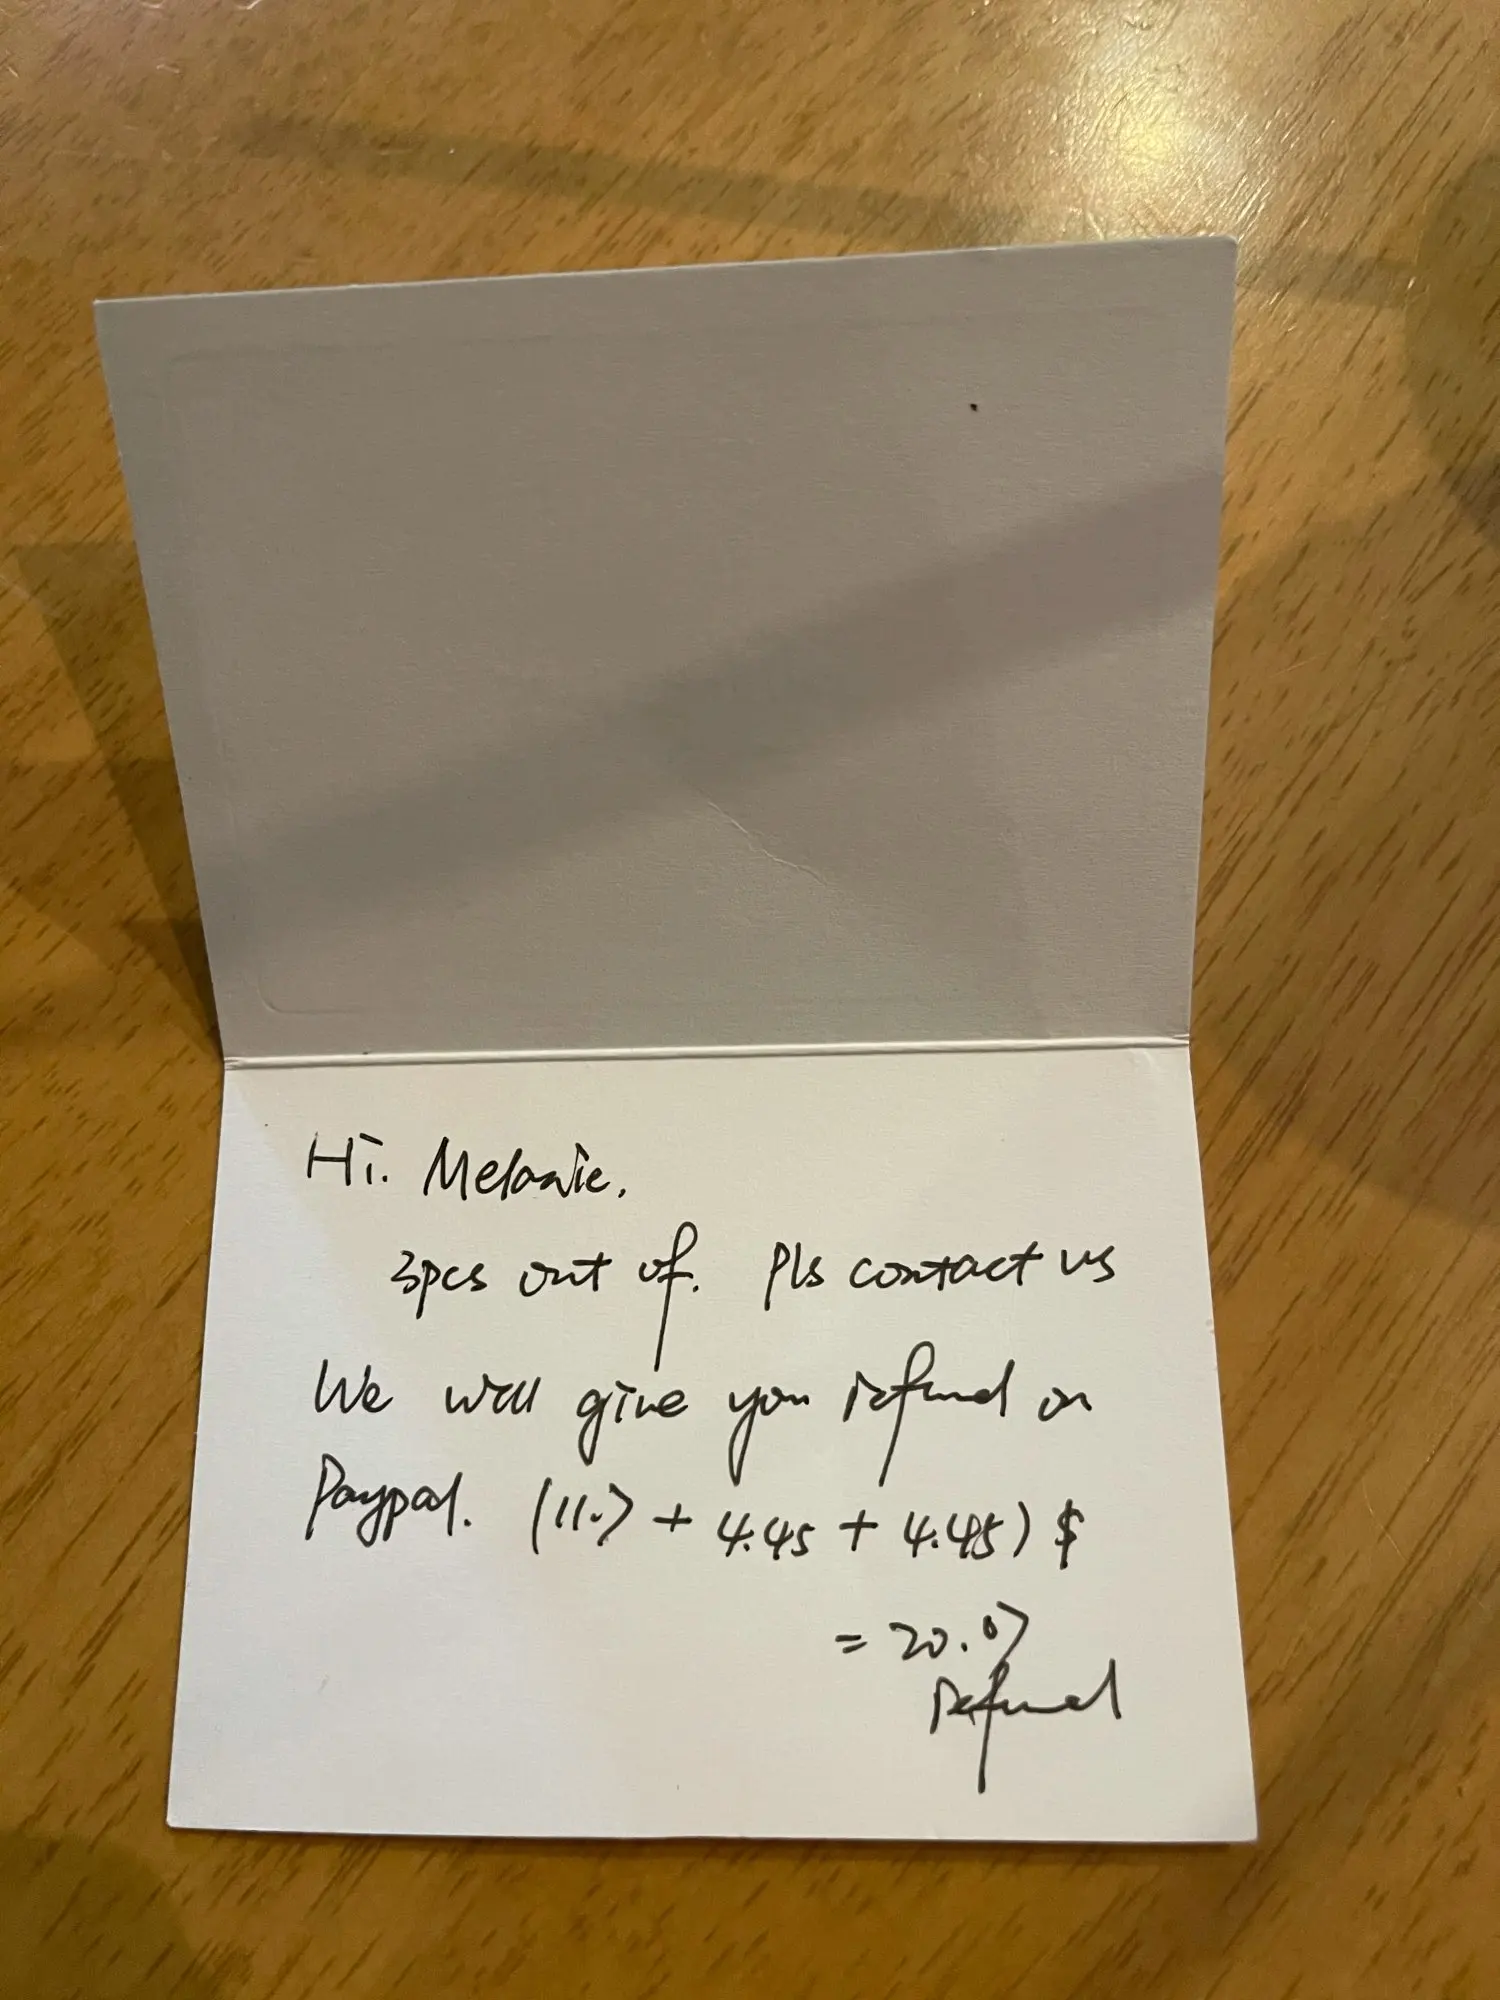 Hi. Melanie,
3pcs out of. Pls contact us
We will give you refund on
Paypal. (11.7 + 4.45 + 4.45) $
= 20.07
refund